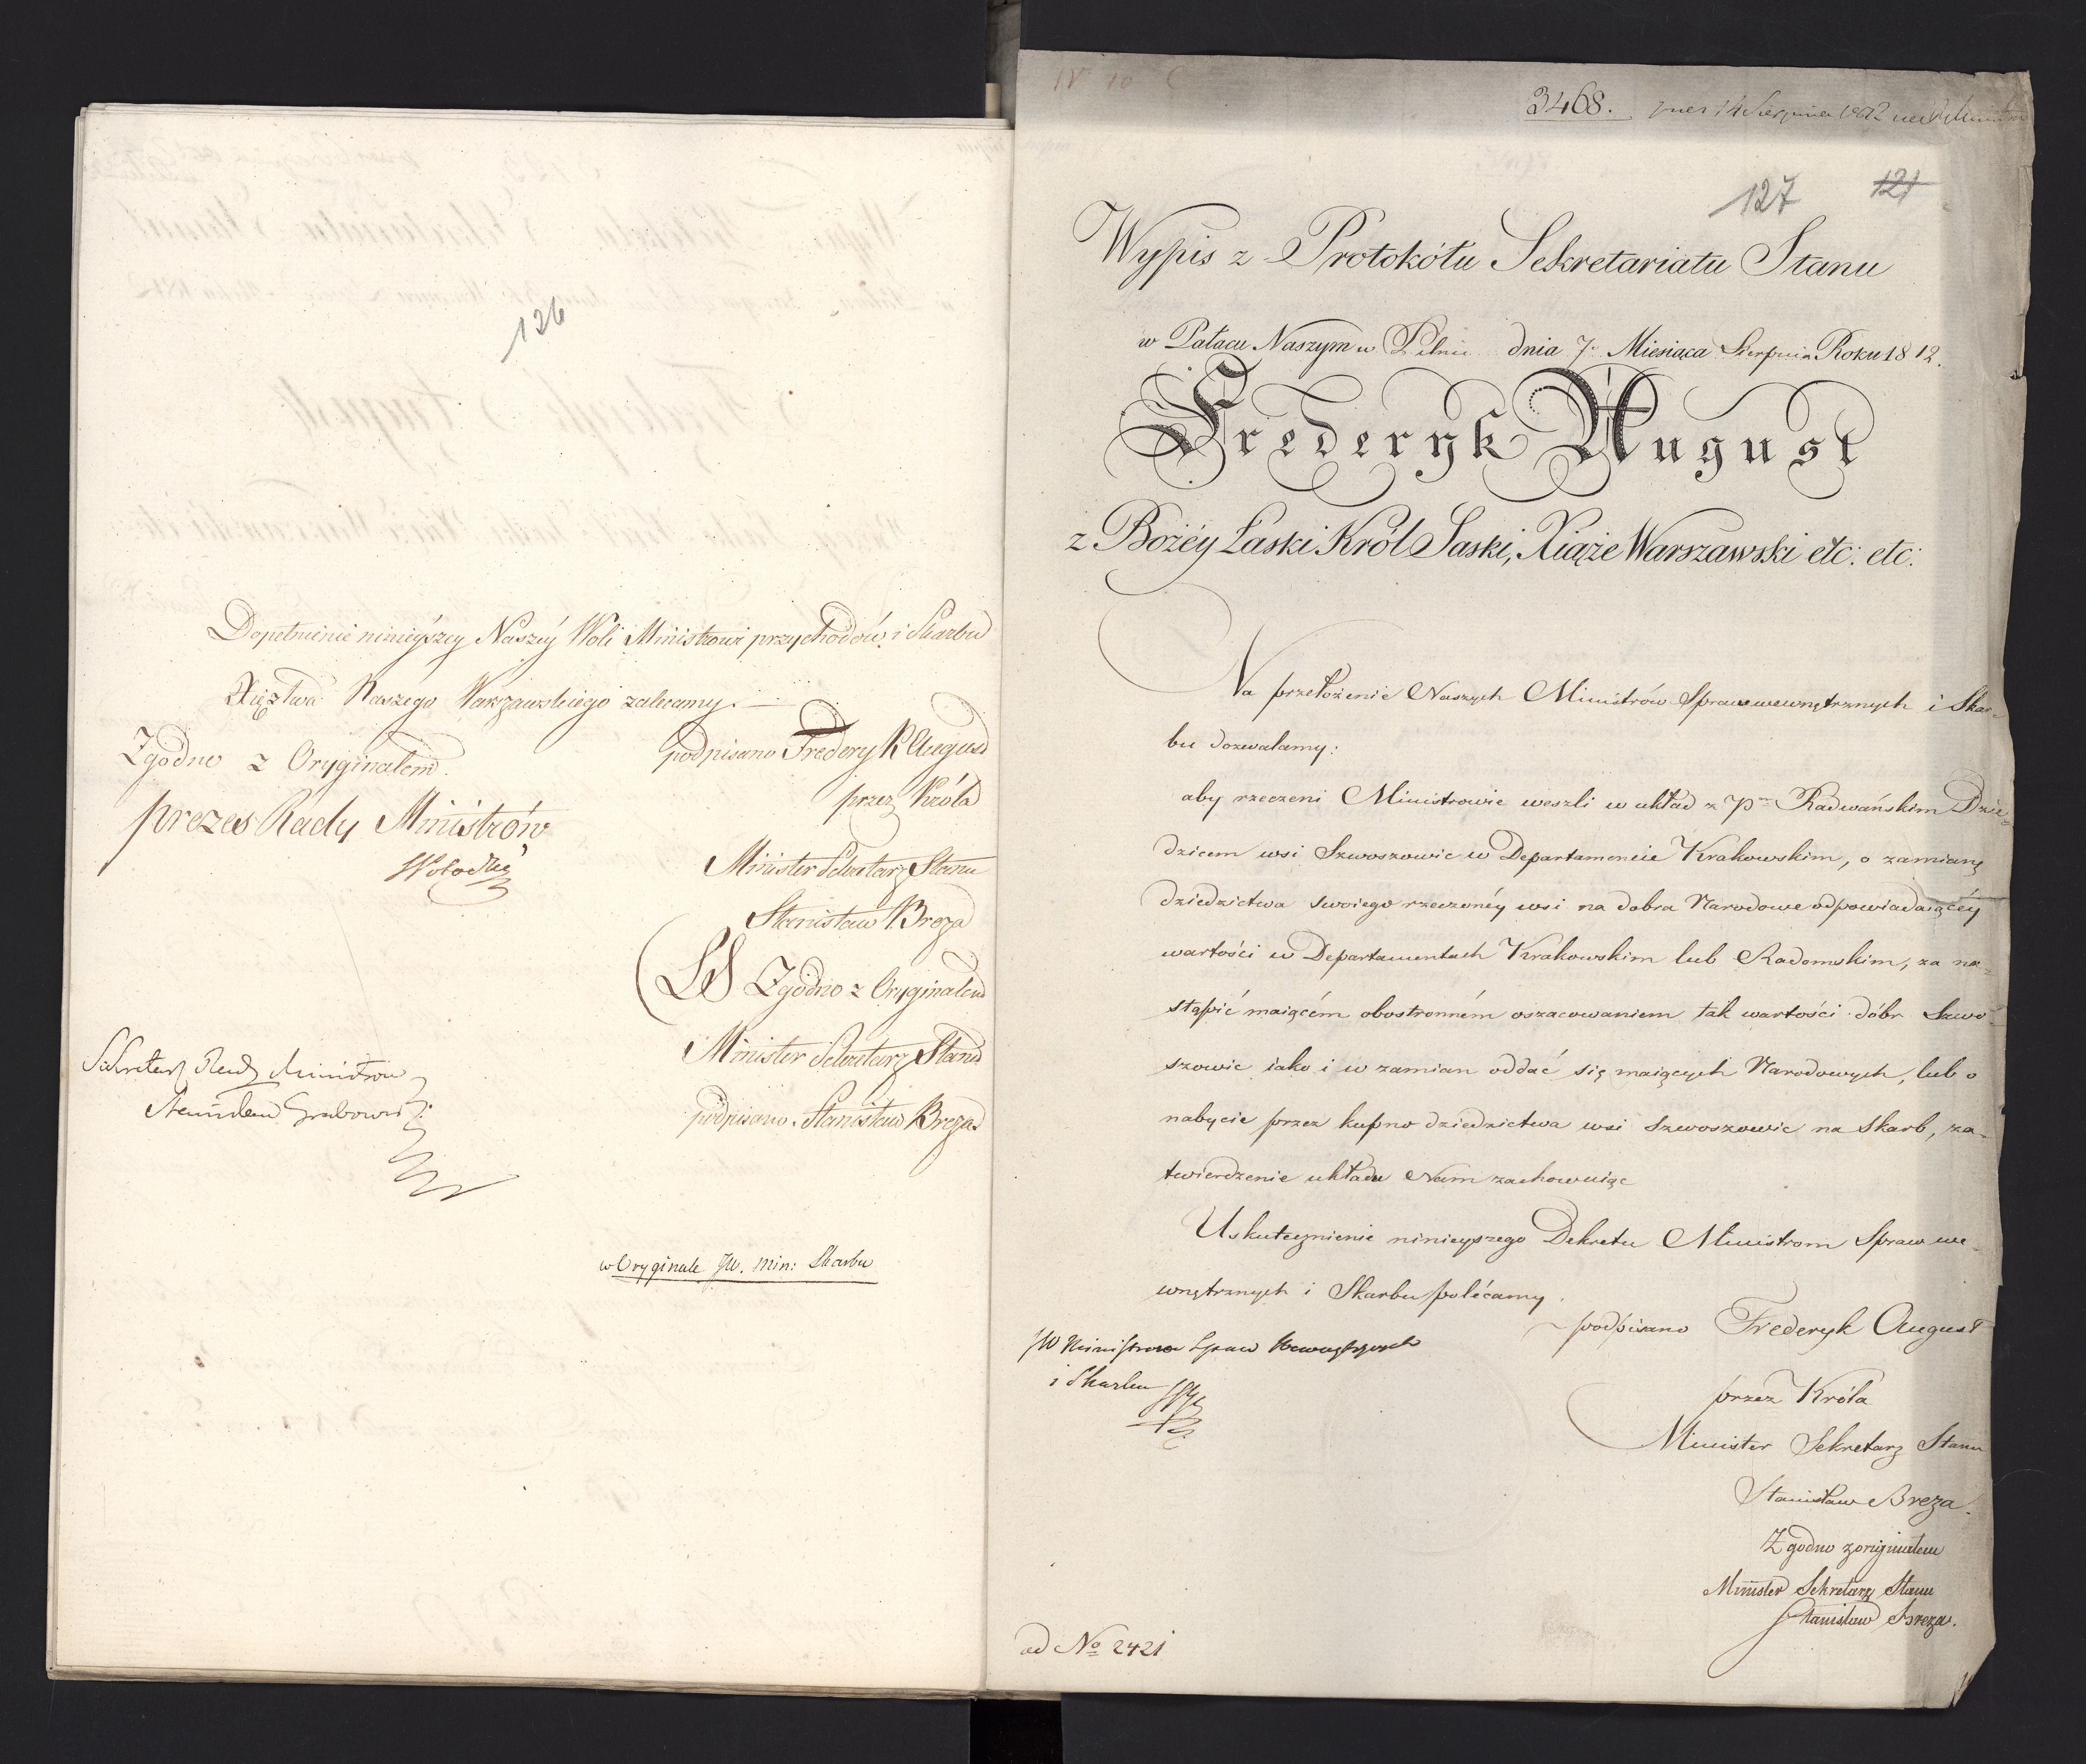 126
Dopełnienie ninieyszey Naszéy Woli Ministrowi przychodów i Skarbu
Xięztwa Naszego Warszawskiego zalecamy.
Zgodno z Oryginałem
podpisano Frederyk August
przez Króla
prezes Rady Ministrów
Minister Sekretarz Stanu
Stanisław Breza
(LS Zgodno z Oryginałem
Minister Sekretarz Stanu
podpisano Stanisław Breza
Sekretarz Rady Ministrów
Stanisław Grabowski
w Oryginale JW. Min: Skarbu
IV 10 C
3468. 14 Sierpnia 1812
127 121
Wypis z Protokółu Sekretariatu Stanu
w Pałacu Naszym w Pilnie dnia 7. Miesiąca Sierpnia Roku 1812.
Frederyk August
z Bożéy Łaski Król Saski, Xiąże Warszawski etc: etc:
Na przełożenie Naszych Ministrów Spraw wewnętrznych i Skar-
bu dozwalamy:
aby rzeczeni Ministrowie weszli w układ z Pm Radwańskim Dzie-
dzicem wsi Szwoszowic w Departamencie Krakowskim, o zamianę
dziedzictwa swoiego rzeczonéy wsi na dobra Narodowe odpowiadaiącéy
wartości w Departamentach Krakowskim lub Radomskim, za na-
stąpić maiącém obostronném oszacowaniem tak wartości dóbr Szwo-
szowic iako i w zamian oddać się maiących Narodowych, lub o
nabycie przez kupno dziedzictwa wsi Szwoszowic na Skarb, za-
twierdzenie układu Nam zachowuiąc
Uskutecznienie ninieyszego Dekretu Ministrom Spraw we-
wnętrznych i Skarbu polécamy.
podpisano Frederyk August
JW Ministrowie Spraw Wewnętrznych
i Skarbu
przez Króla
Minister Sekretarz Stanu
Stanisław Breza.
Zgodno z originałem
Minister Sekretarz Stanu
Stanisław Breza.
ad No 2421